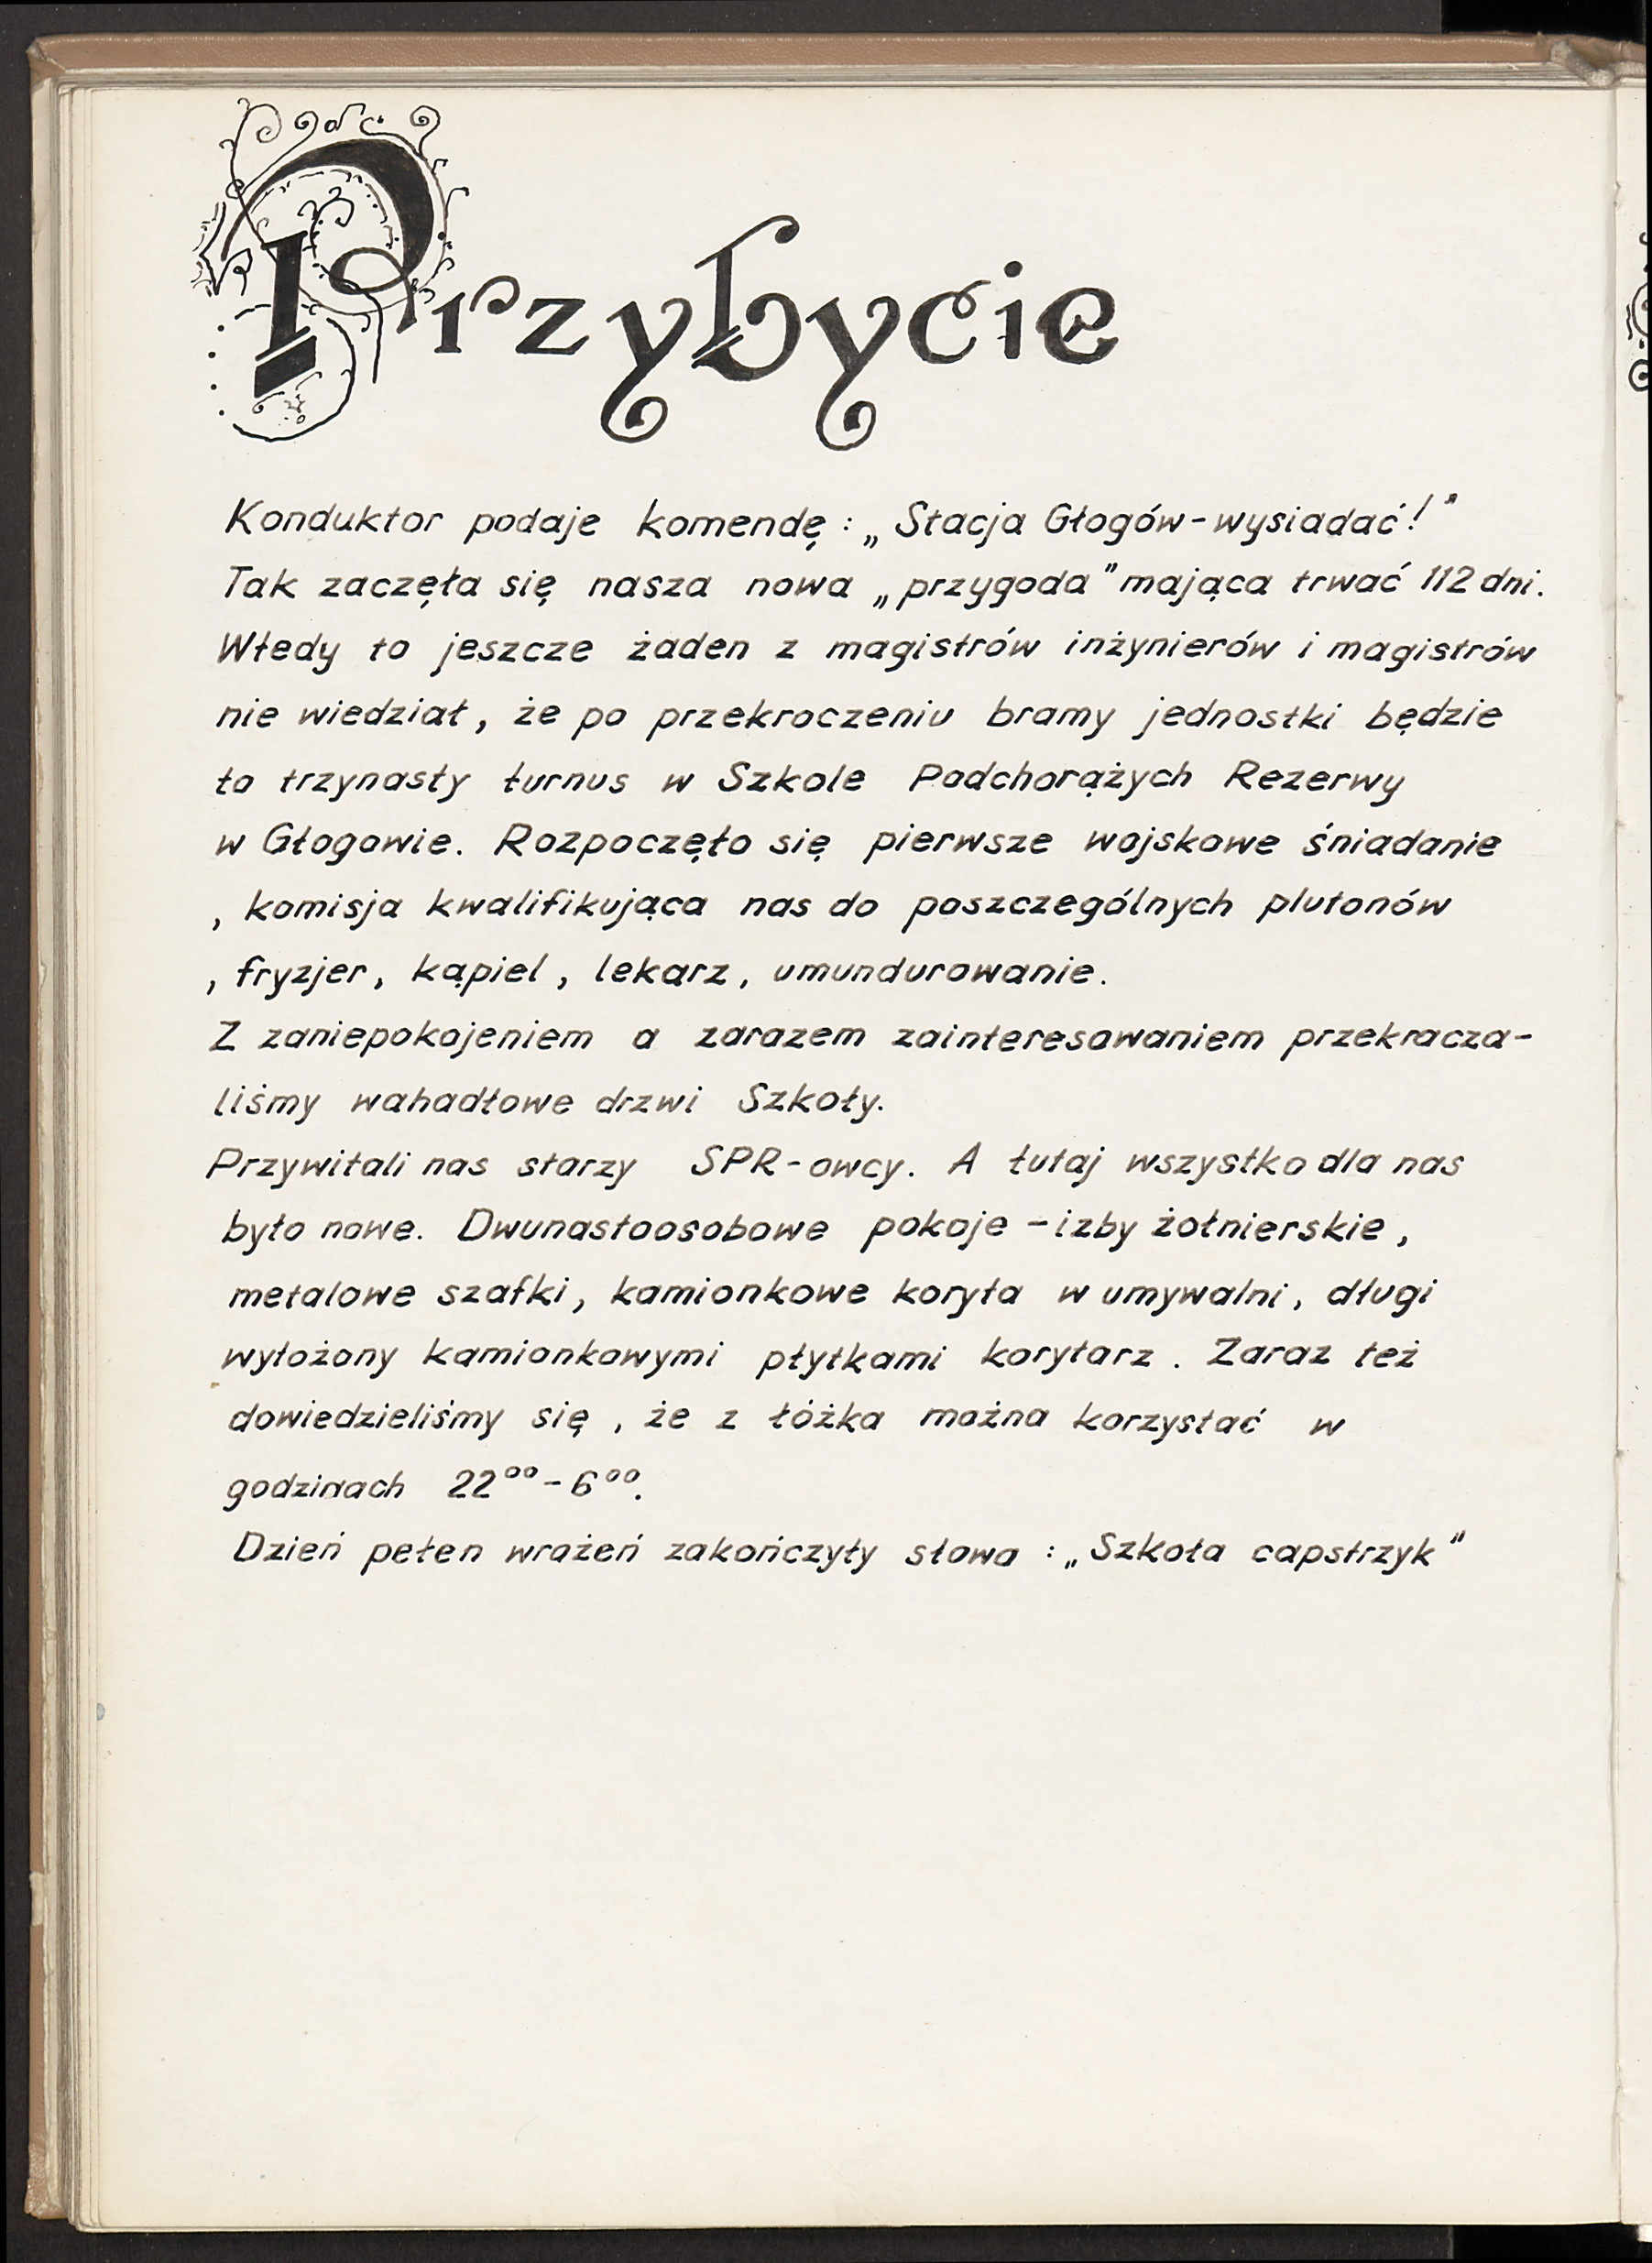 Przybycie
Konduktor podaje komendę : „Stacja Głogów - wysiadać!"
Tak zaczęła się nasza nowa „przygoda" mająca trwać 112 dni.
Wtedy to jeszcze żaden z magistrów inżynierów i magistrów
nie wiedział, że po przekroczeniu bramy jednostki będzie
to trzynasty turnus w Szkole Podchorążych Rezerwy
w Głogowie. Rozpoczęło się pierwsze wojskowe śniadanie
, komisja kwalifikująca nas do poszczególnych plutonów
, fryzjer, kąpiel, lekarz, umundurowanie.
Z zaniepokojeniem a zarazem zainteresowaniem przekracza-
liśmy wahadłowe drzwi Szkoły.
Przywitali nas starzy SPR-owcy. A tutaj wszystko dla nas
było nowe. Dwunastoosobowe pokoje - izby żołnierskie,
metalowe szafki, kamionkowe koryta w umywalni, długi
wyłożony kamionkowymi płytkami korytarz. Zaraz też
dowiedzieliśmy się, że z łóżka można korzystać w
godzinach 22⁰⁰ - 6⁰⁰.
Dzień pełen wrażeń zakończyły słowa : „Szkoła capstrzyk"